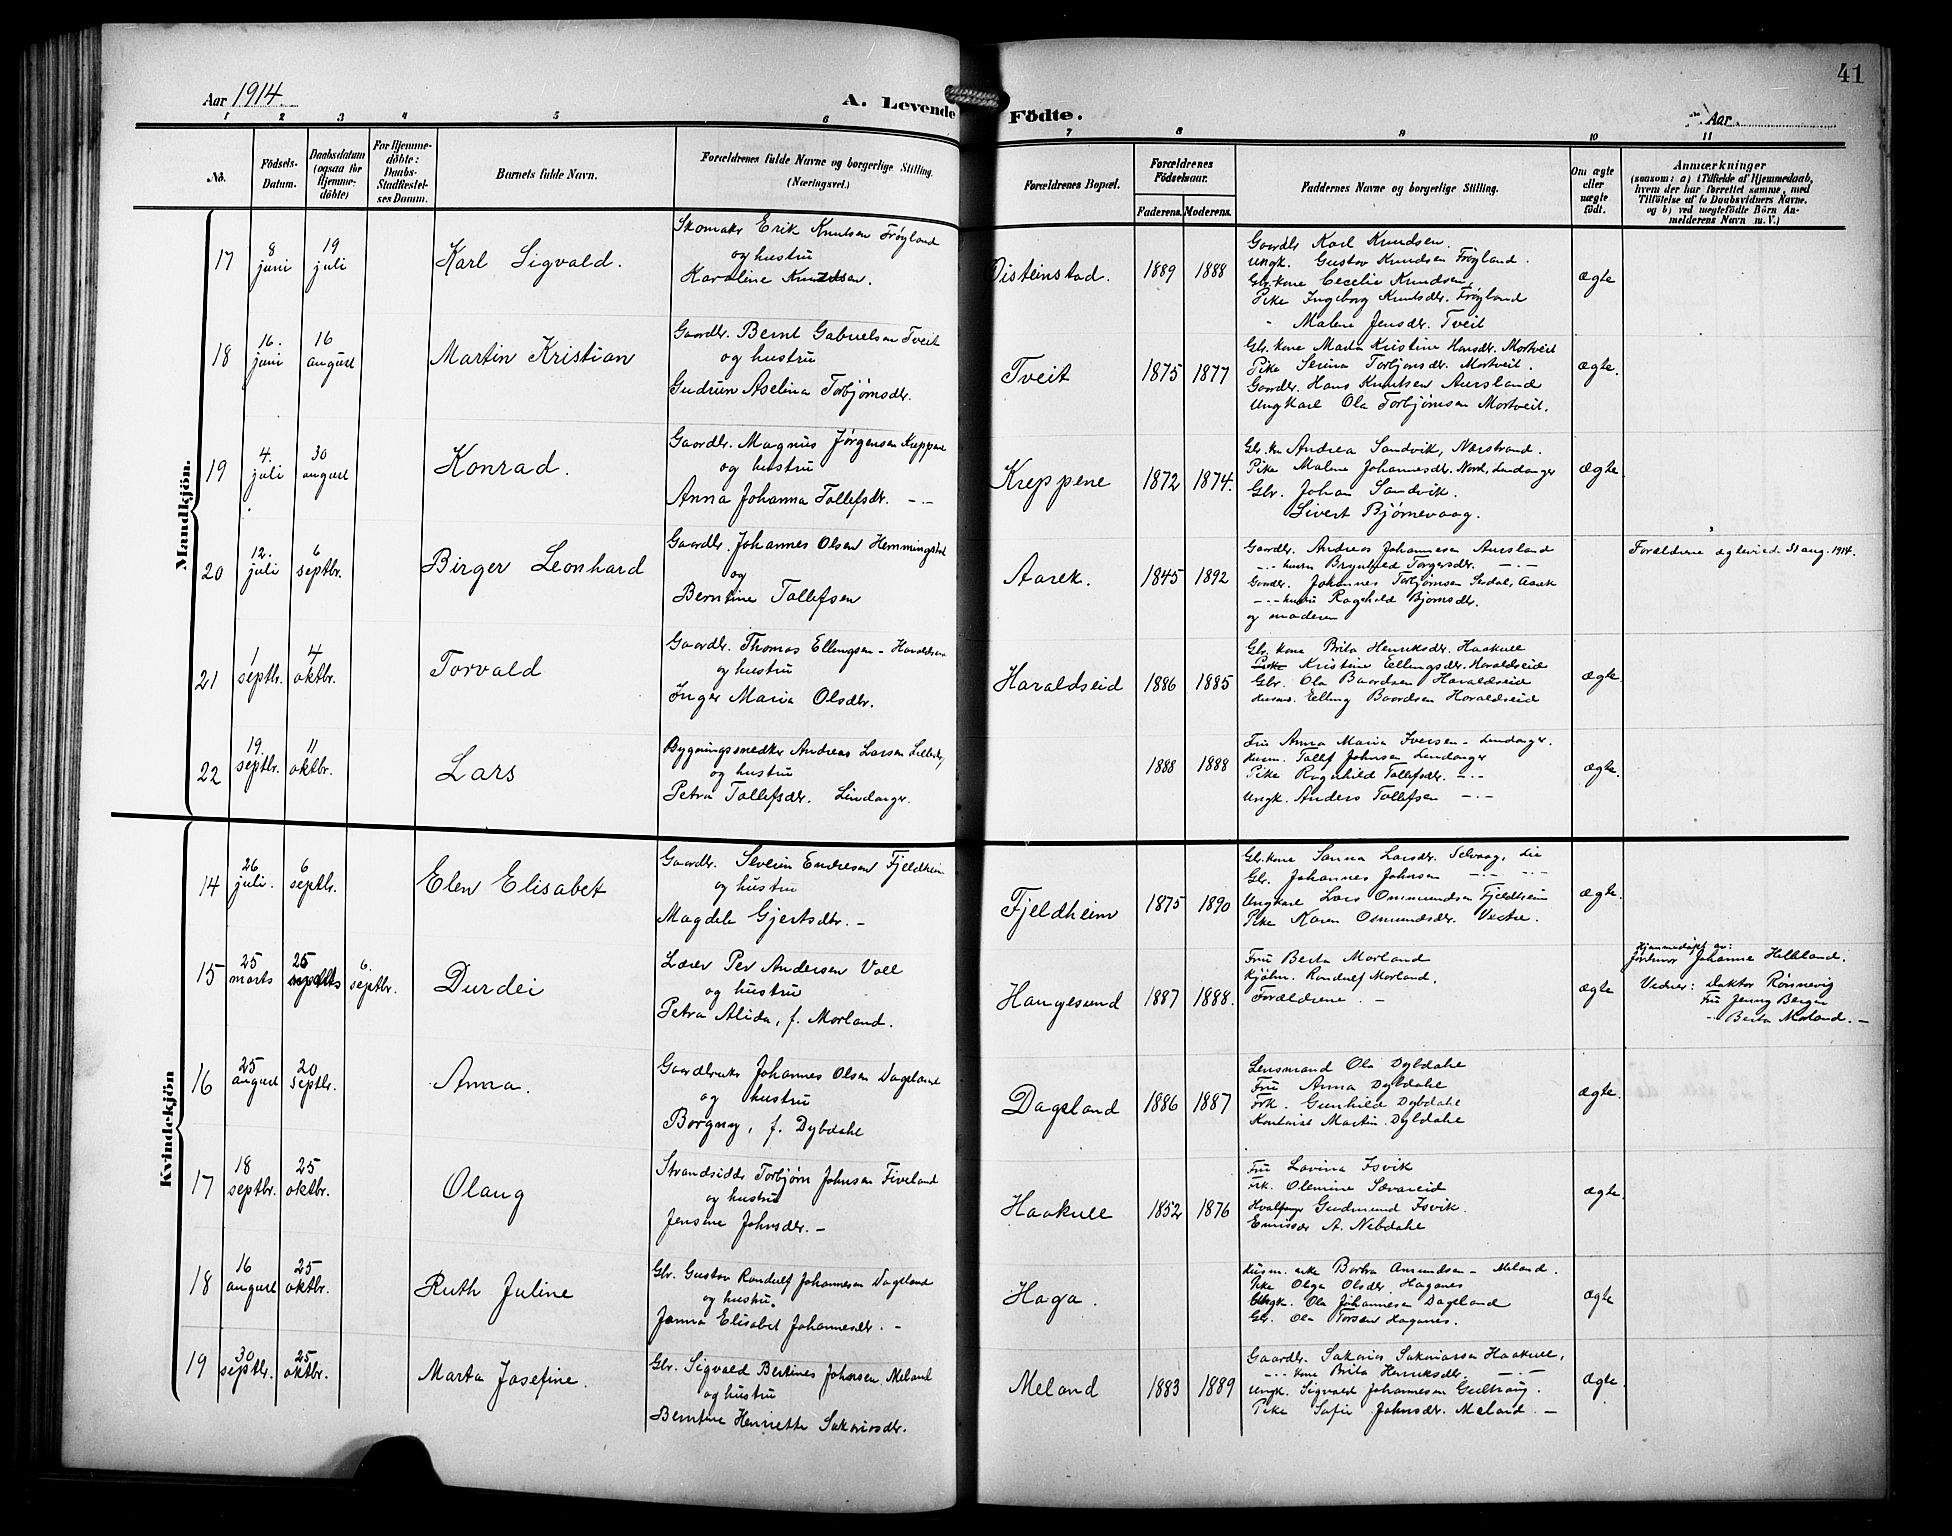 41
Aar 1914.
A. Levende Födte.
Aar
1 2 3 4 5 6 7 8 9 10 11
No.
Födsels-Datum.
Daabsdatum (ogsaa for Hjemme-döbte)
For Hjemme-döbte: Daabs-Stadfæstel-ses Datum.
Barnets fulde Navn.
Forældrenes fulde Navne og borgerlige Stilling. (Næringsvei.)
Forældrenes Bopæl.
Forældrenes Födselsaar.
Faderens. Moderens.
Faddernes Navne og borgerlige Stilling.
Om ægte eller uægte födt.
Anmærkninger
(saasom: a) i Tilfælde af Hjemmedaab,
hvem der har forrettet samme, med
Tilföielse af to Daabsvidners Navne,
og b) ved uægtefödte Börn An-
melderens Navn m. V.)
Mandkjön.
17
8 juni
19 juli
Karl Sigvald.
Skomaker Erik Knutsen Frøyland
og hustru
Karoline Knudsen.
Øisteinstad.
1889 1888
Gaardbr Karl Knudsen.
Ungk. Gustav Knudsen Frøyland.
Gbr.kone Cecelie Knudsen,
Pike Ingeborg Knutsdr. Frøyland
" Malene Jensdr. Tveit
ægte
18
16. juni
16 august
Martin Kristian
Gaardbr. Bernt Gabrielsen Tveit
og hustru
Gudrun Aselina Torbjørnsdr.
Tveit
1875 1877
Gbr. kone Marta Kristine Hansdr. Mortveit
Pike Serina Torbjønsdr. Mortveit.
Gaardbr. Hans Knutsen Aursland
Ungkarl Ola Torbjørnsen Mortveit.
ægte.
19
4. juli
30 august
Konrad.
Gaardbr. Magnus Jørgensen Kreppene
og hustru
Anna Johanna Tollefsdr. -.-
Kreppene
1872 1874.
Gbr. kn Andrea Sandvik, Nærstrand.
Pike Malene Johannesdr. Nord, Lindanger
Gbr. Johan Sandvik.
Sivert Bjørnevaag.
ægte
20
12. juli
6 septbr.
Birger Leonhard
Gaardbr. Johannes Olsen Hemmingstad
og
Berntine Tollefsen
Aarek.
1845 1892
Gaardbr. Andreas Johannesen Aursland
-.- hustru Brynhild Torgersdr. -.-
Gaardbr. Johannes Torbjørnsen Aarek
-.- hustru Ragnhild Bjørnsdr.
og moderen
Forældrene ægteviede 31 aug. 1914.
21
1 septbr.
4 oktbr.
Torvald
Gaardbr. Thomas Ellingsen - Haraldseid
og hustru
Inger Maria Olsdtr.
Haraldseid
1886 1885
Gbr. kone Brita Henriksdr. Haakull
Pike Kristine Ellingsdr. Haraldseid
Gbr. Ola Baardsen Haraldseid
Husm. Elling Baardsen Haraldseid
ægte
22
19. septbr.
11 oktbr.
Lars
Bygningssnedker Andreas Larsen
og hustru
Petra Tollefsdr. Lindanger
1888 1888
Fru Anna Maria Iversen - Lindanger.
Husm. Tollef Johnsen Lindanger
Pike Ragnhild Tollefsdr. -.-
Ungk. Anders Tollefsen -.-
ægte.
Kvindekjön
14
26 juli.
6 septbr.
Elen Elisabet
Gaardbr. Severin Endresen Fjeldheim
og hustru
Magdela Gjertsdtr. -
Fjeldheim
1875 1890
Gbr.kone Sanna Larsdr. Selvaag,
Gbr. Johannes Johnsen
Ungkarl Lars Ommundsen Fjeldheim
Pike Karen Osmundsdr. Vestre.
ægte.
15
25 marts
25
6. septbr.
Durdei
Lærer Per Andersen Voll
og hustru
Petra Alida, f. Morland.
Haugesund
1887 1888.
Fru Berta Morland
Kjøbm. Rondulf Morland.
Forældrene. -
ægte
Hjemmedøpt av:
Jordmor Johanne Helkland.
Vidner: Doktor Rönnevig
Fru Jenny Berge
-.- Berta Morland. -
16
25 august
20 septbr.
Anna.
Gaardbruker Johannes Olsen Dagsland
og hustru
Borgny, f. Dybdahl
Dagsland
1886 1887
Lensmand Ola Dybdahl
Fru Anna Dybdahl
Frk. Gunhild Dybdahl
Kontorist Martin Dybdahl
ægte.
17
18 septbr.
25 oktbr.
Olaug
Strandsidder Torbjørn Johnsen Fiveland
og hustru
Jensine Johnsdr. -
Haakull
1852 1876
Fru Lovina Isvik
Frk. Olemine Sævareid
Hvalfanger Gudmund Isvik.
Emissær A. Nebdahl
ægte.
18
16 august
25 oktbr.
Ruth Juline
Gbr. Gustav Rondulf Johannesen Dagsland
og hustru.
Janna Elisabet Johannesdr. -
Haga.
Husm. enke Borta Amundsen - Meland.
Pike Olga Olsdr. Haganes
Ungk. Ola Johannesen Dagsland
Gbr. Ola Torsen Haganes.
ægte
19
30 septbr.
25 oktbr.
Marta Josefine.
Gbr. Sigvald Bertines Johnsen Meland
og hustru
Berntine Henriette Sakariasdr.
Meland
1883 1889
Gaardbr. Sakarias Sakariassen Haakull,
-.- kone Brita Henriksdr. -.-
Ungk. Sigvald Johannesen
Pike Sofie Johnsdr. Meland. -
ægte.